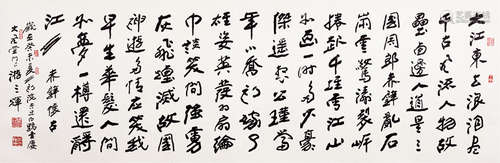 大江東去浪淘盡
千古風流人物故
壘西邊人道是三
國周郎赤壁亂石
崩雲驚濤裂岸
捲起千堆雪江山
如畫一時多少豪
傑遙想公瑾當
年小喬初嫁了
雄姿英發羽扇綸
巾談笑間強虜
灰飛煙滅故國
神遊多情應笑我
早生華髮人間
如夢一樽還酹
江月 東坡懷古
歲在癸未